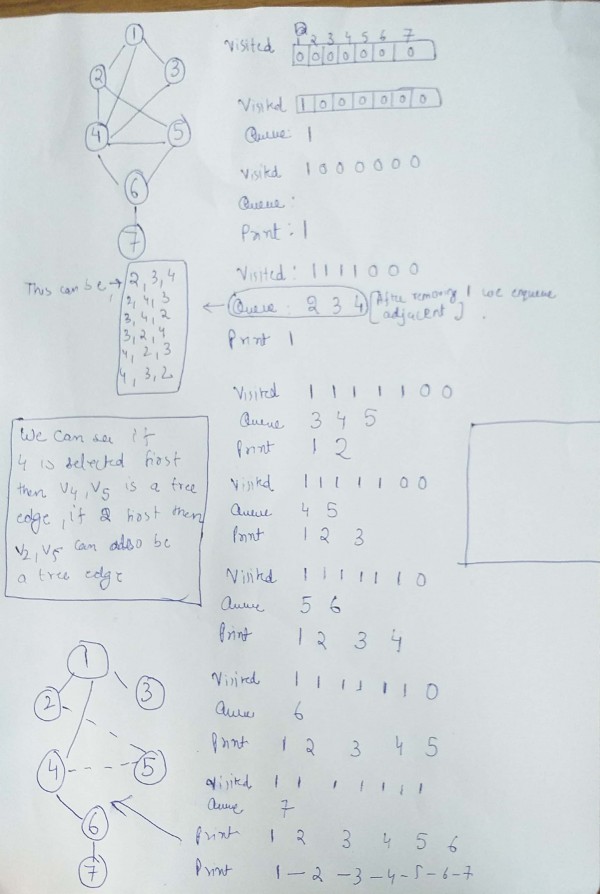 1
2
3
4
5
6
7
Visited
1 2 3 4 5 6 7
0 0 0 0 0 0 0
Visited 1 0 0 0 0 0 0
Queue: 1
Visited 1 0 0 0 0 0 0
Queue:
Print: 1
Visited: 1 1 1 1 0 0 0
Queue: 2 3 4 [After removing 1 we enqueue
adjacent]
Print 1
This can be →
2, 3, 4
2, 4, 3
3, 4, 2
3, 2, 4
4, 2, 3
4, 3, 2
Visited 1 1 1 1 1 0 0
Queue 3 4 5
Print 1 2
Visited 1 1 1 1 1 0 0
Queue 4 5
Print 1 2 3
Visited 1 1 1 1 1 1 0
Queue 5 6
Print 1 2 3 4
Visited 1 1 1 1 1 1 0
Queue 6
Print 1 2 3 4 5
Visited 1 1 1 1 1 1 1
Queue 7
Print 1 2 3 4 5 6
Print 1 - 2 - 3 - 4 - 5 - 6 - 7
We can see if
4 is selected first
then V4, V5 is a tree
edge, if 2 first then
V2, V5 can also be
a tree edge
1
2
3
4
5
6
7